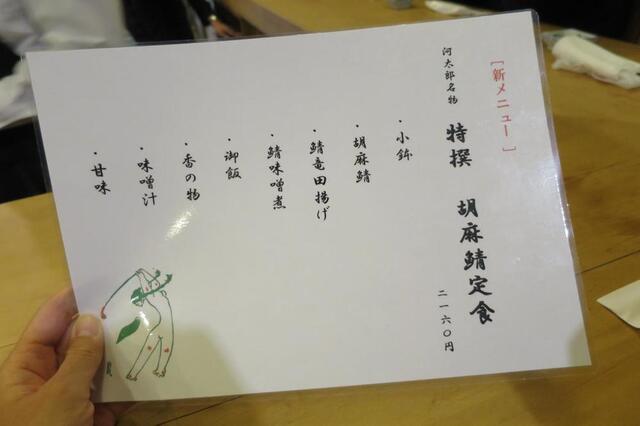 [新メニュー]
河太郎名物
特撰 胡麻鯖定食
二一六〇円
・小鉢
・胡麻鯖
・鯖竜田揚げ
・鯖味噌煮
・御飯
・香の物
・味噌汁
・甘味